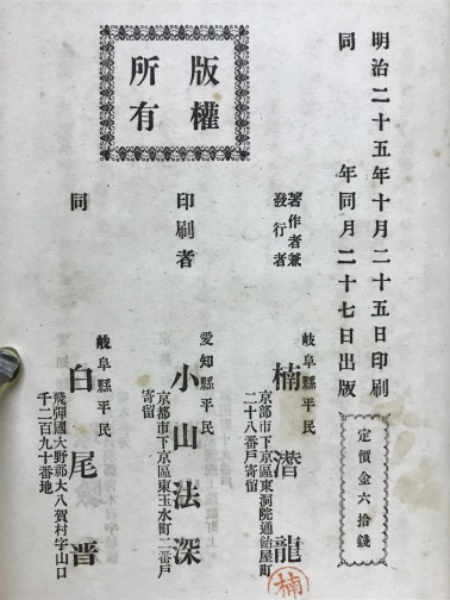 明治二十五年十月二十五日印刷
同年同月二十七日出版
定價金六拾錢
版權
所有
著作者兼
發行者
岐阜縣平民
楠潛龍
京都市下京區東洞院通飴屋町
二十八番戸寄留
楠
印刷者
愛知縣平民
小山法深
京都市下京區東玉水町二番戸
寄留
同
岐阜縣平民
白尾晋
飛驒國大野郡大八賀村字山口
千二百九十番地